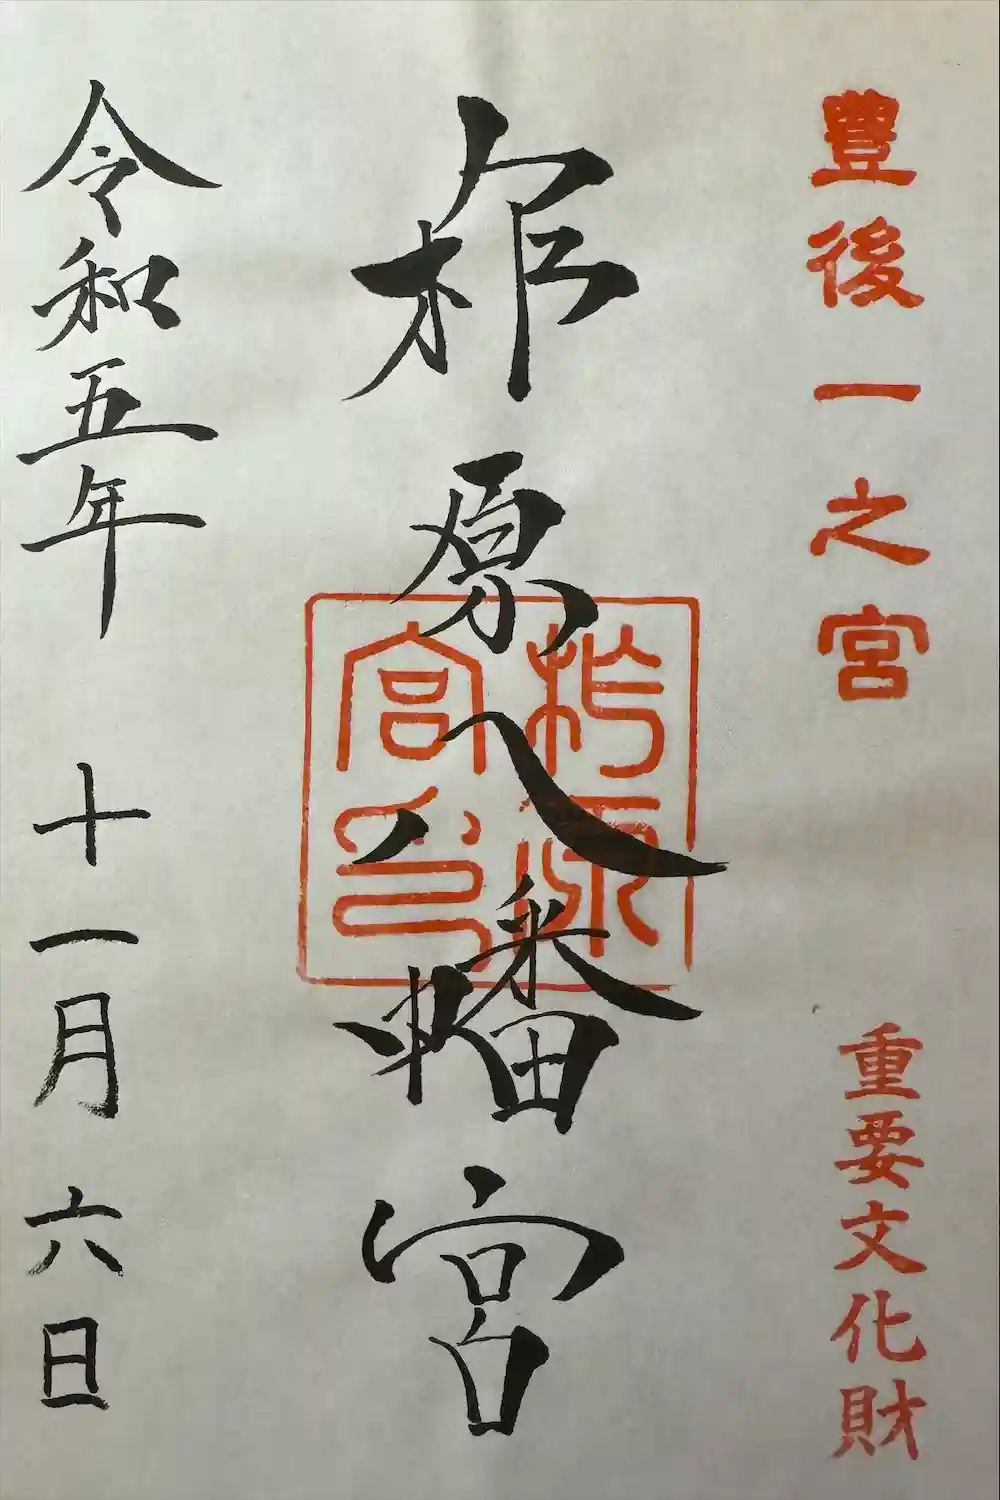 豊後一之宮
重要文化財
柞原八幡宮
柞原
宮印
令和五年
十一月六日